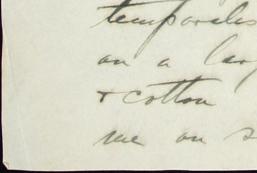 temporales
on a larg
+ cotton
me on s